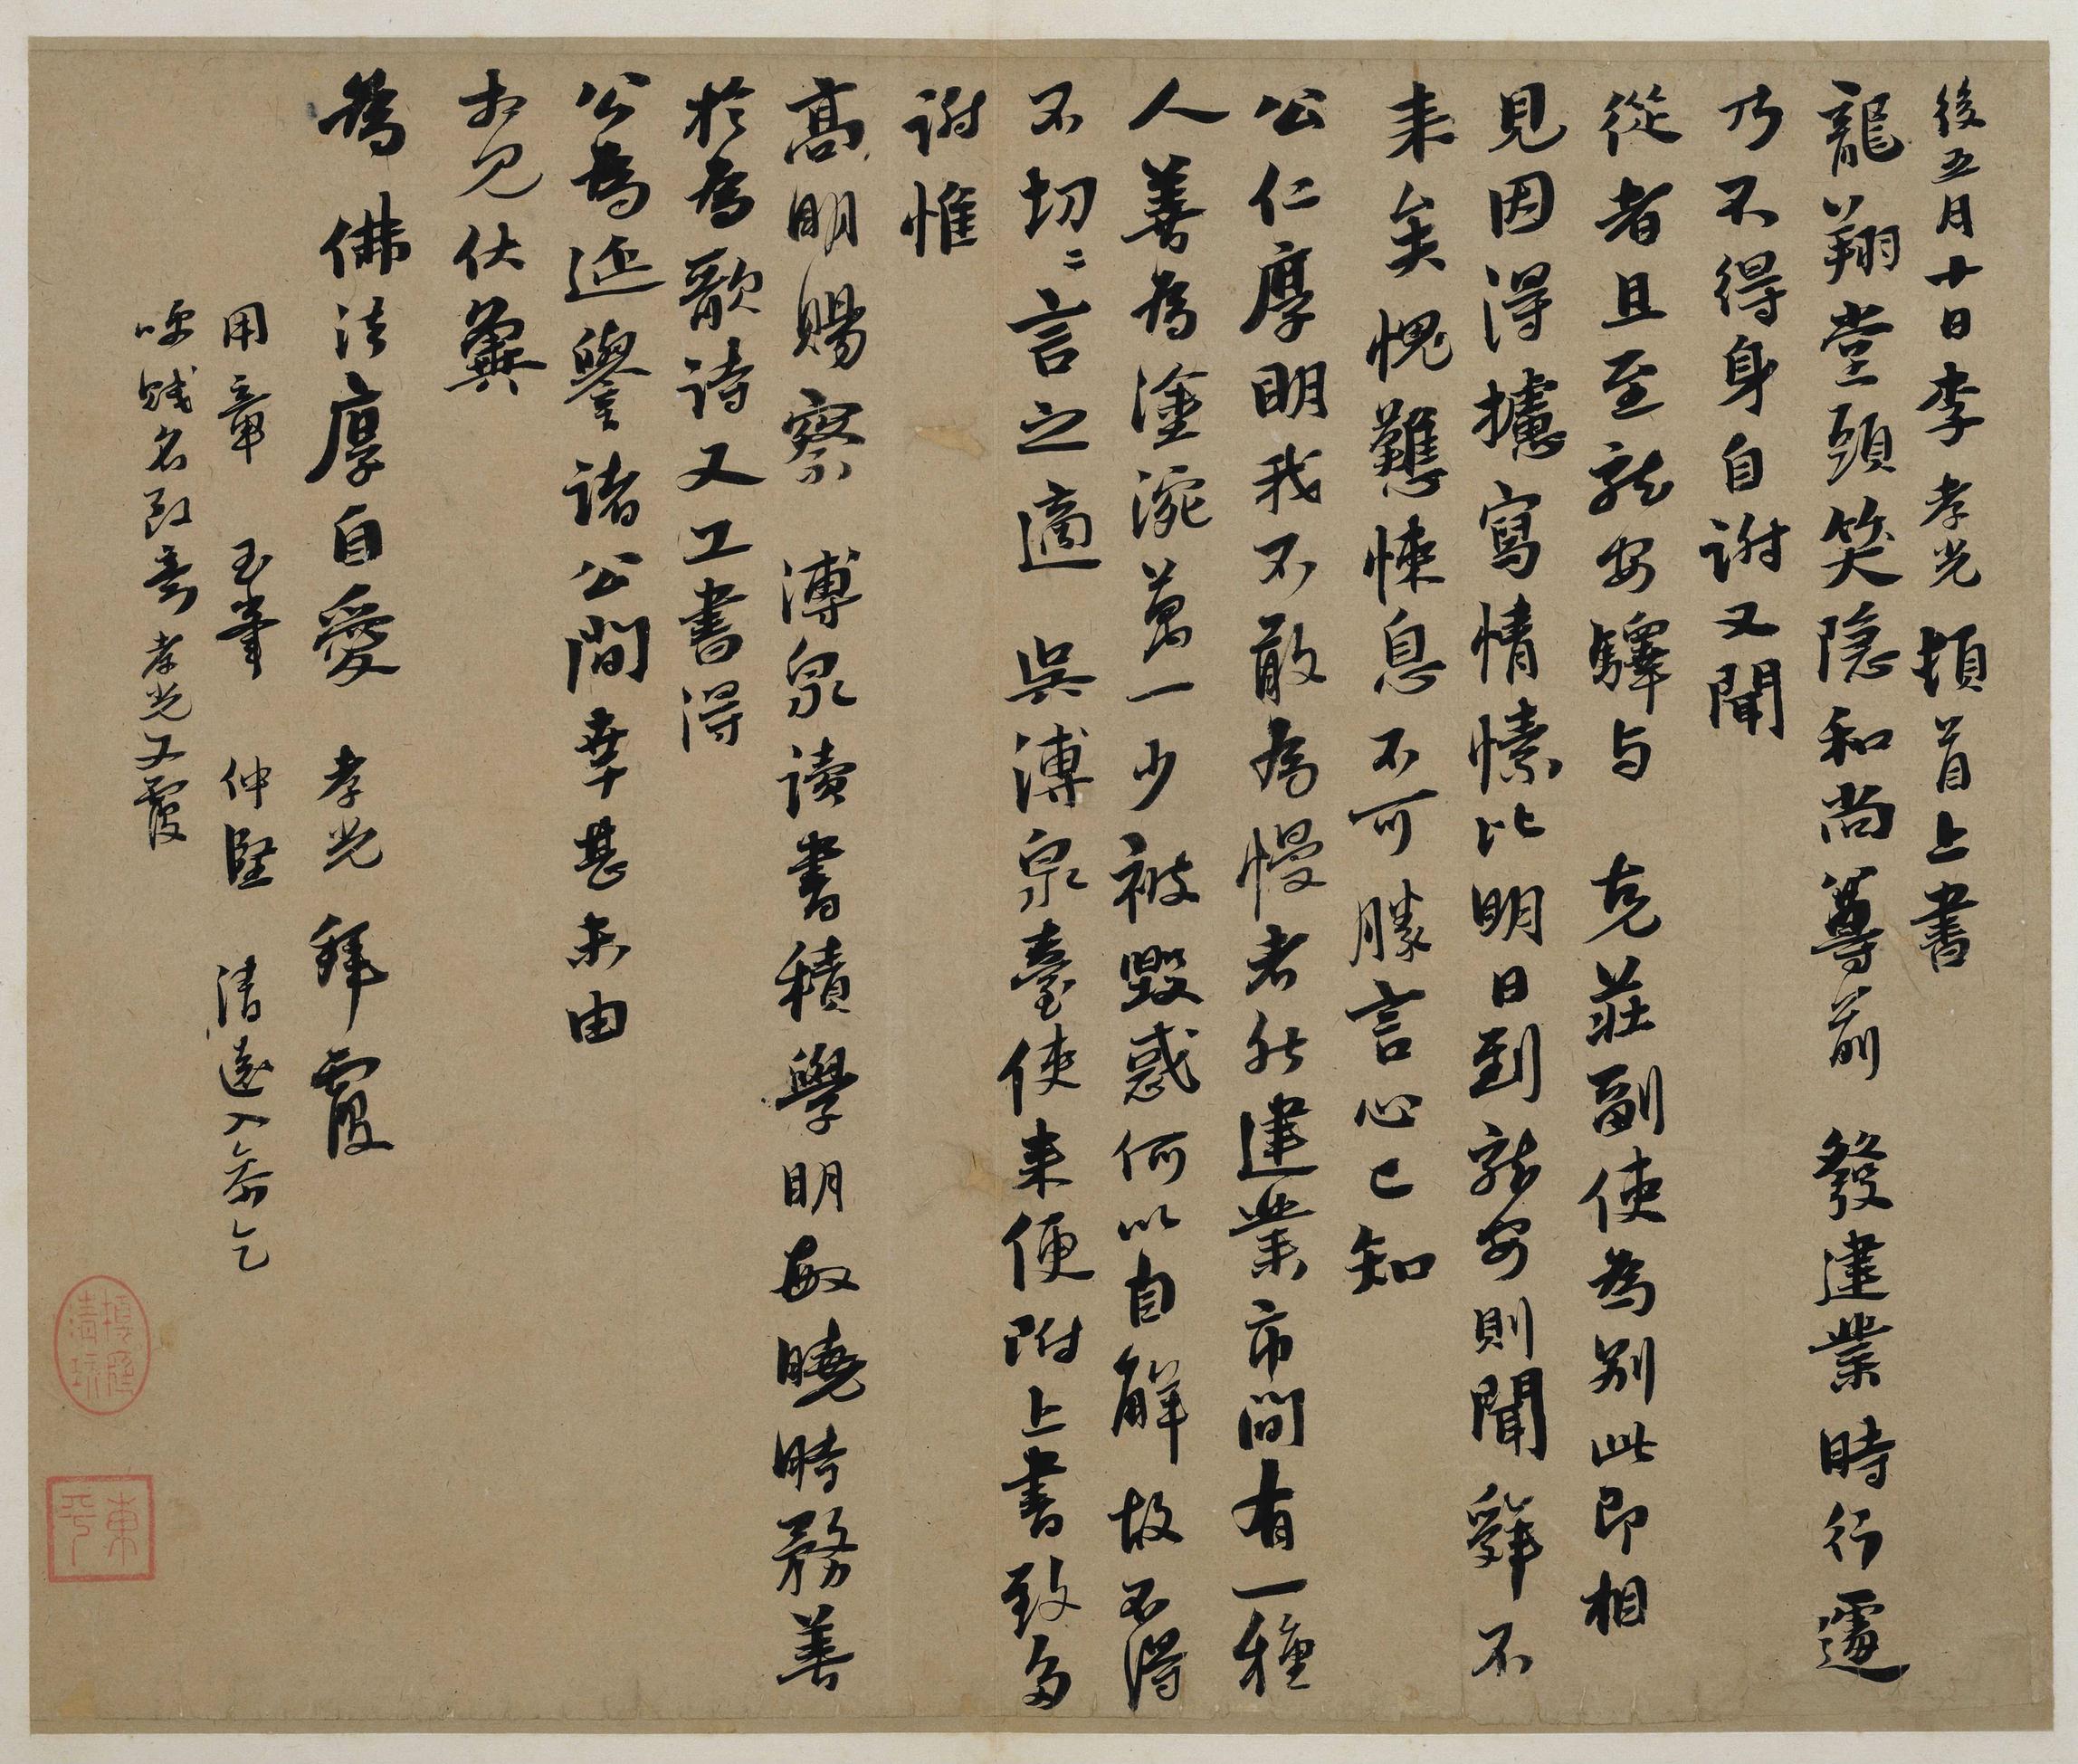 後五月十日李孝光頓首上書
龍翔堂頭笑隐和尚尊前 發建業時行遽
乃不得身自谢又聞
從者且至龍安驛与 克莊副使為别此即相
見因得攄寫情愫比明日到龍安則聞舜不
来矣愧難悚息不可勝言心已知
公仁厚明我不敢為慢者然建業市間有一種
人善為塗涴萬一少被毁惑何以自解故不得
不切〻言之適 吳溥泉臺使来便附上書致多
谢惟
高明赐察 溥泉读書積學明敏曉時務善
於為歌诗又工書得
公為延譽诸公間幸甚未由
相見伏冀
為 佛法厚自愛 孝光 拜覆
用章 玉峯 仲堅 清遠
賤名致意孝光又覆
東平